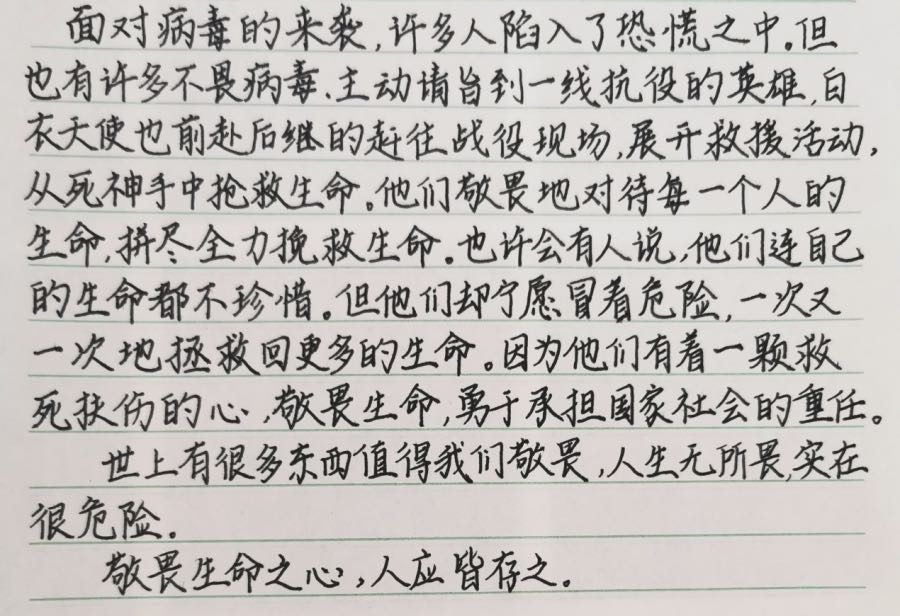 面对病毒的来袭,许多人陷入了恐慌之中。但
也有许多不畏病毒、主动请旨到一线抗役的英雄,白
衣天使也前赴后继的赶往战役现场,展开救援活动,
从死神手中抢救生命。他们敬畏地对待每一个人的
生命,拼尽全力挽救生命。也许会有人说,他们连自己
的生命都不珍惜。但他们却宁愿冒着危险,一次又
一次地拯救回更多的生命。因为他们有着一颗救
死扶伤的心,敬畏生命,勇于承担国家社会的重任。
世上有很多东西值得我们敬畏,人生无所畏,实在
很危险。
敬畏生命之心,人应皆存之。